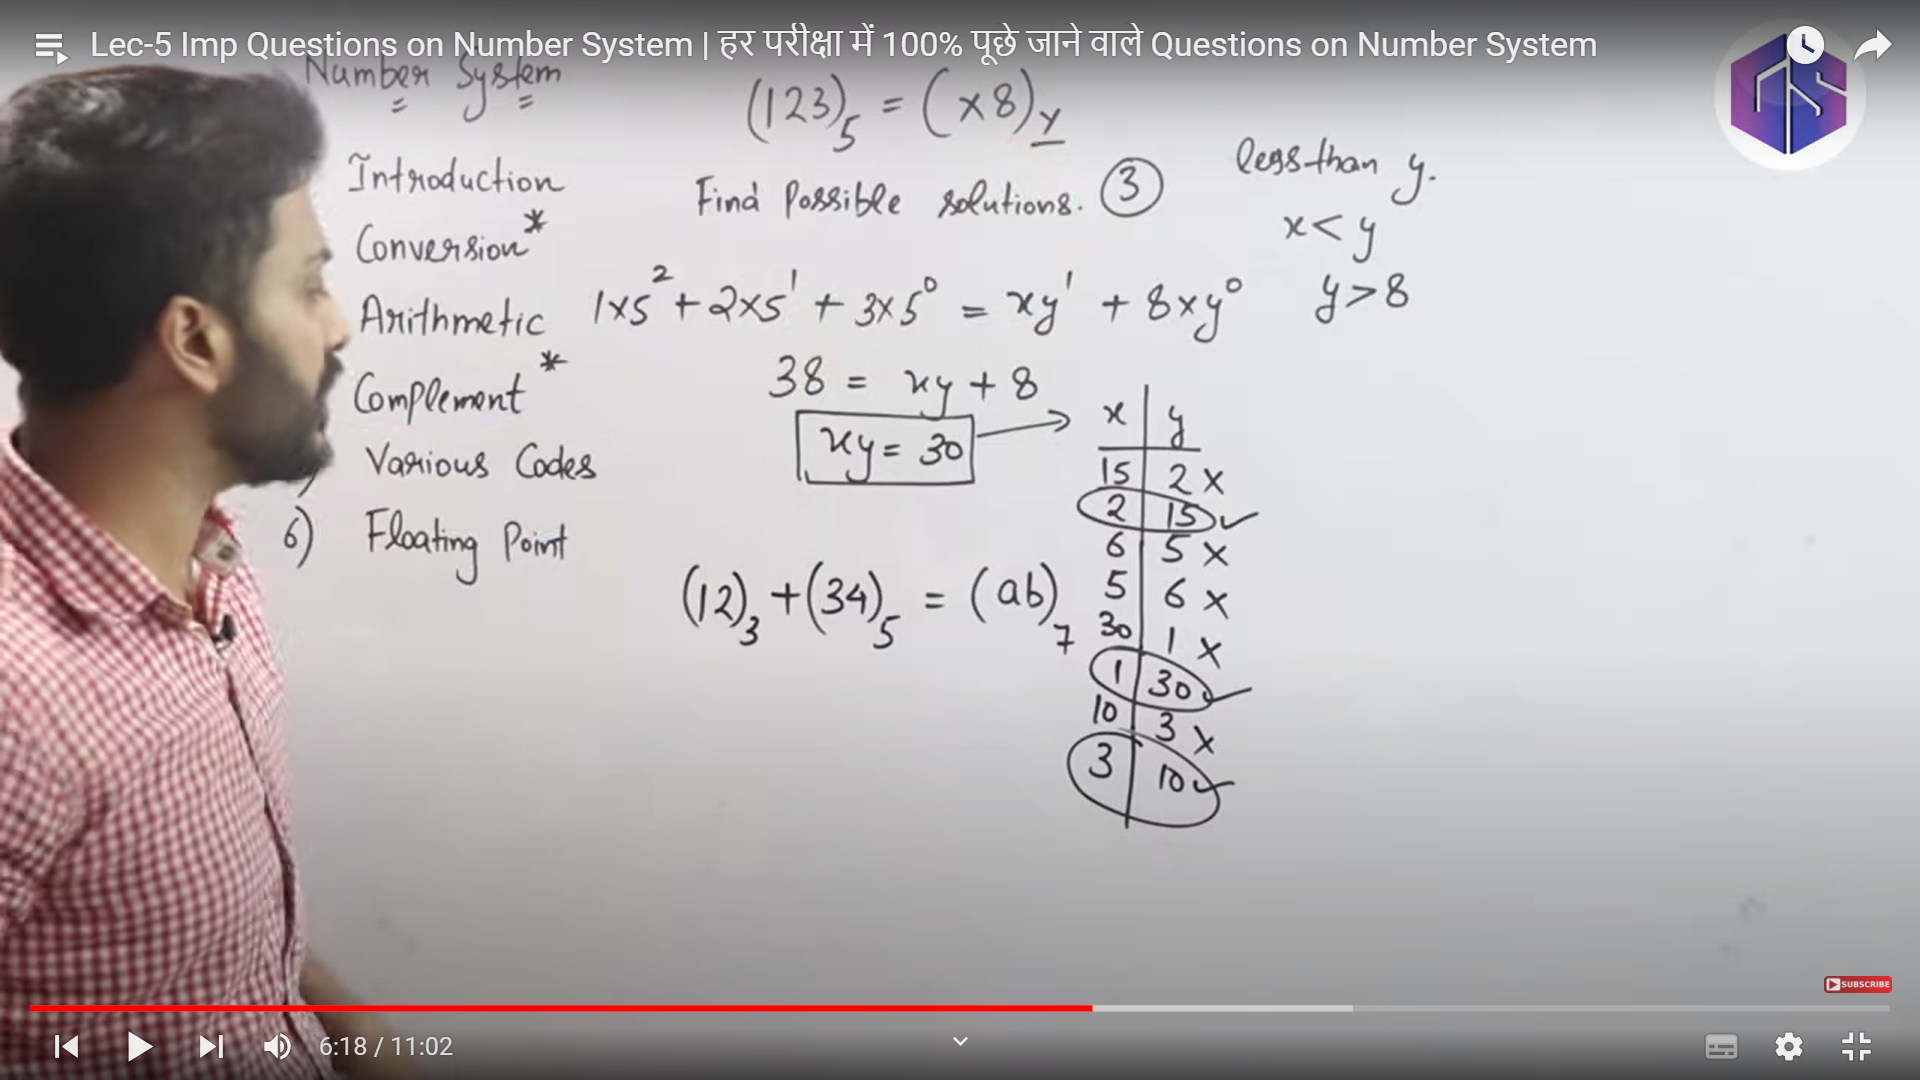 Lec-5 Imp Questions on Number System | हर परीक्षा में 100% पूछे जाने वाले Questions on Number System
Number System
Introduction
Conversion*
Arithmetic
Complement *
Various Codes
6) Floating Point
(123)₅ = (x8)y
Find Possible solutions. ③
less than y.
x < y
y > 8
1×5² + 2×5¹ + 3×5⁰ = xy¹ + 8×y⁰
38 = xy + 8
xy = 30
x y
15 2 ×
2 15 ✓
6 5 ×
5 6 ×
30 1 ×
1 30 ✓
10 3 ×
3 10 ✓
(12)₃ + (34)₅ = (ab)₇
SUBSCRIBE
6:18 / 11:02